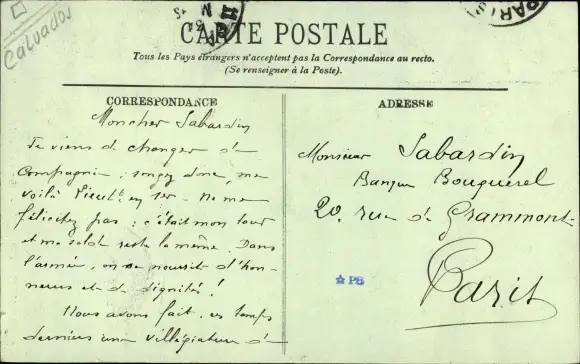 Calvados
PARIS
CARTE POSTALE
Tous les Pays étrangers n'acceptent pas la Correspondance au recto.
(Se renseigner à la Poste).
CORRESPONDANCE
Mon cher Sabardin
Je viens de changer de
Compagnie, songez donc, me
voilà Lieutt en 1er. Ne me
félicitez pas : c'était mon tour
et ma solde reste la même. Dans
l'armée, on se nourrit d'hon-
neurs et de dignités !
Nous avons fait, ces temps
derniers une villégiature de
ADRESSE
Monsieur Sabardin
Banque Bouguerel
20, rue de Grammont
Paris
PB